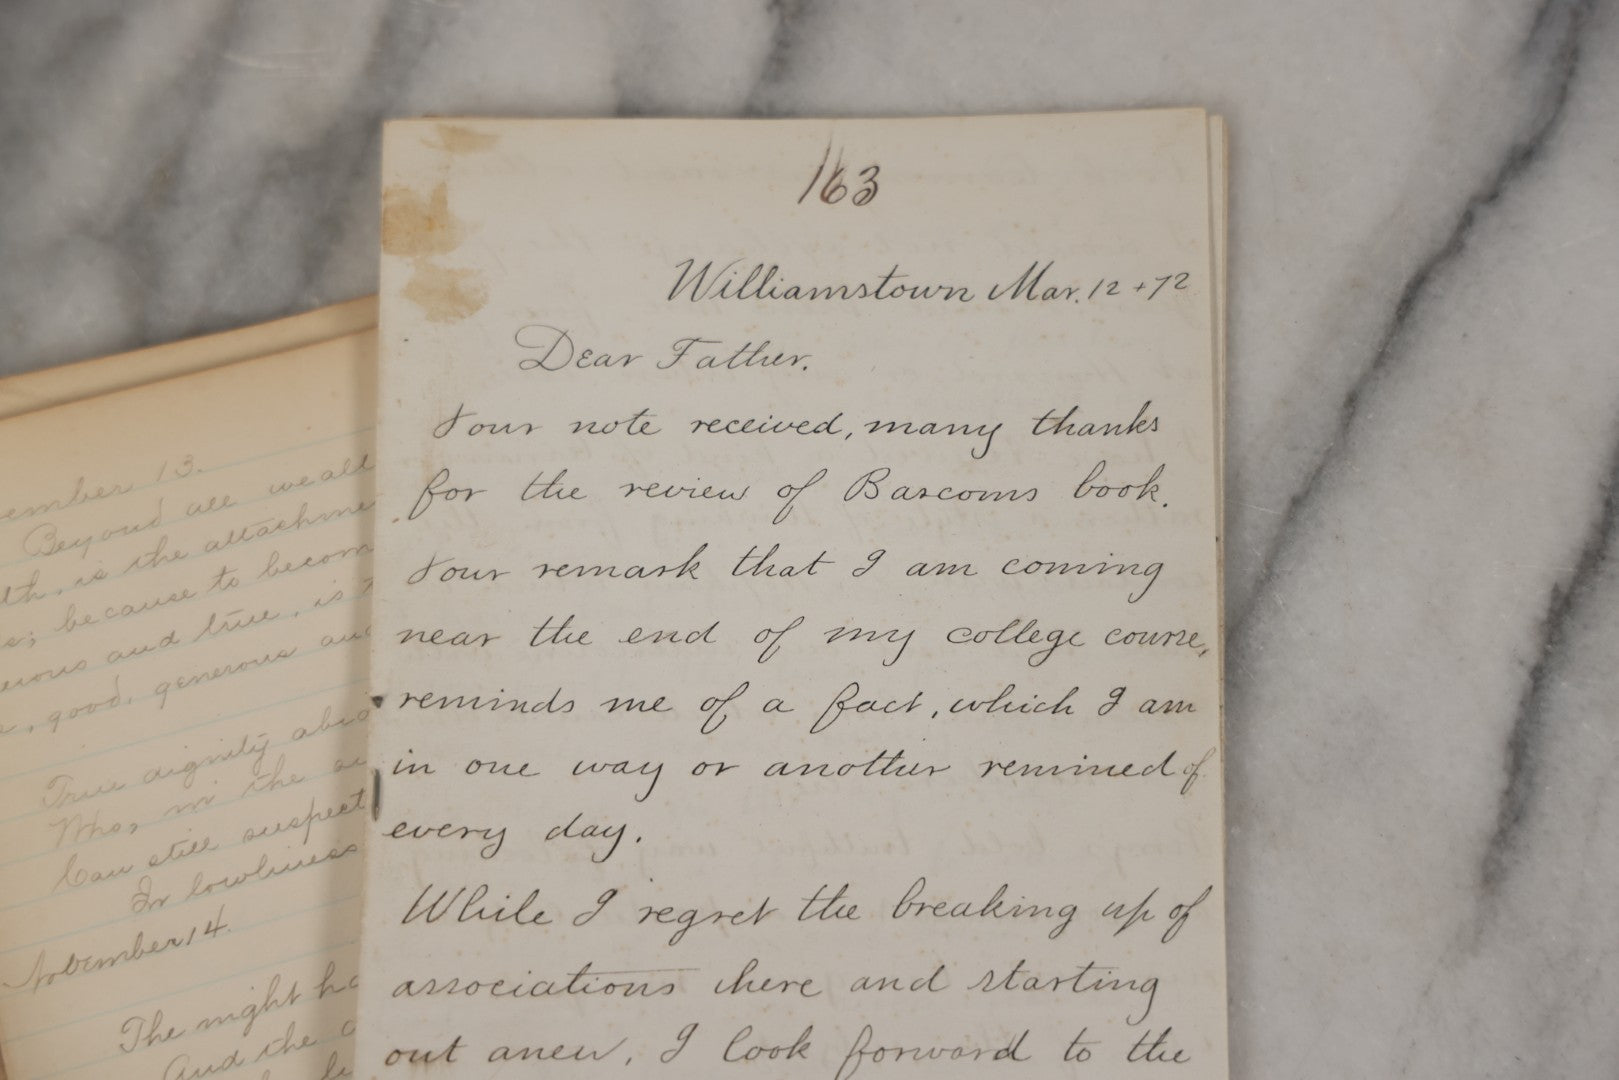 163
Williamstown Mar. 12 + 72
Dear Father.
Your note received, many thanks
for the review of Bascoms book.
Your remark that I am coming
near the end of my college course,
reminds me of a fact, which I am
in one way or another remined of
every day.
While I regret the breaking up of
associations here and starting
out anew, I look forward to the
ember 13.
Beyond all wealt
lth, is the attachme
; because to becom
erous and true, is
, good, generous and
True dignity abid
Who, in the
Can still suspect
In lowliness
November 14.
The night ha
And the